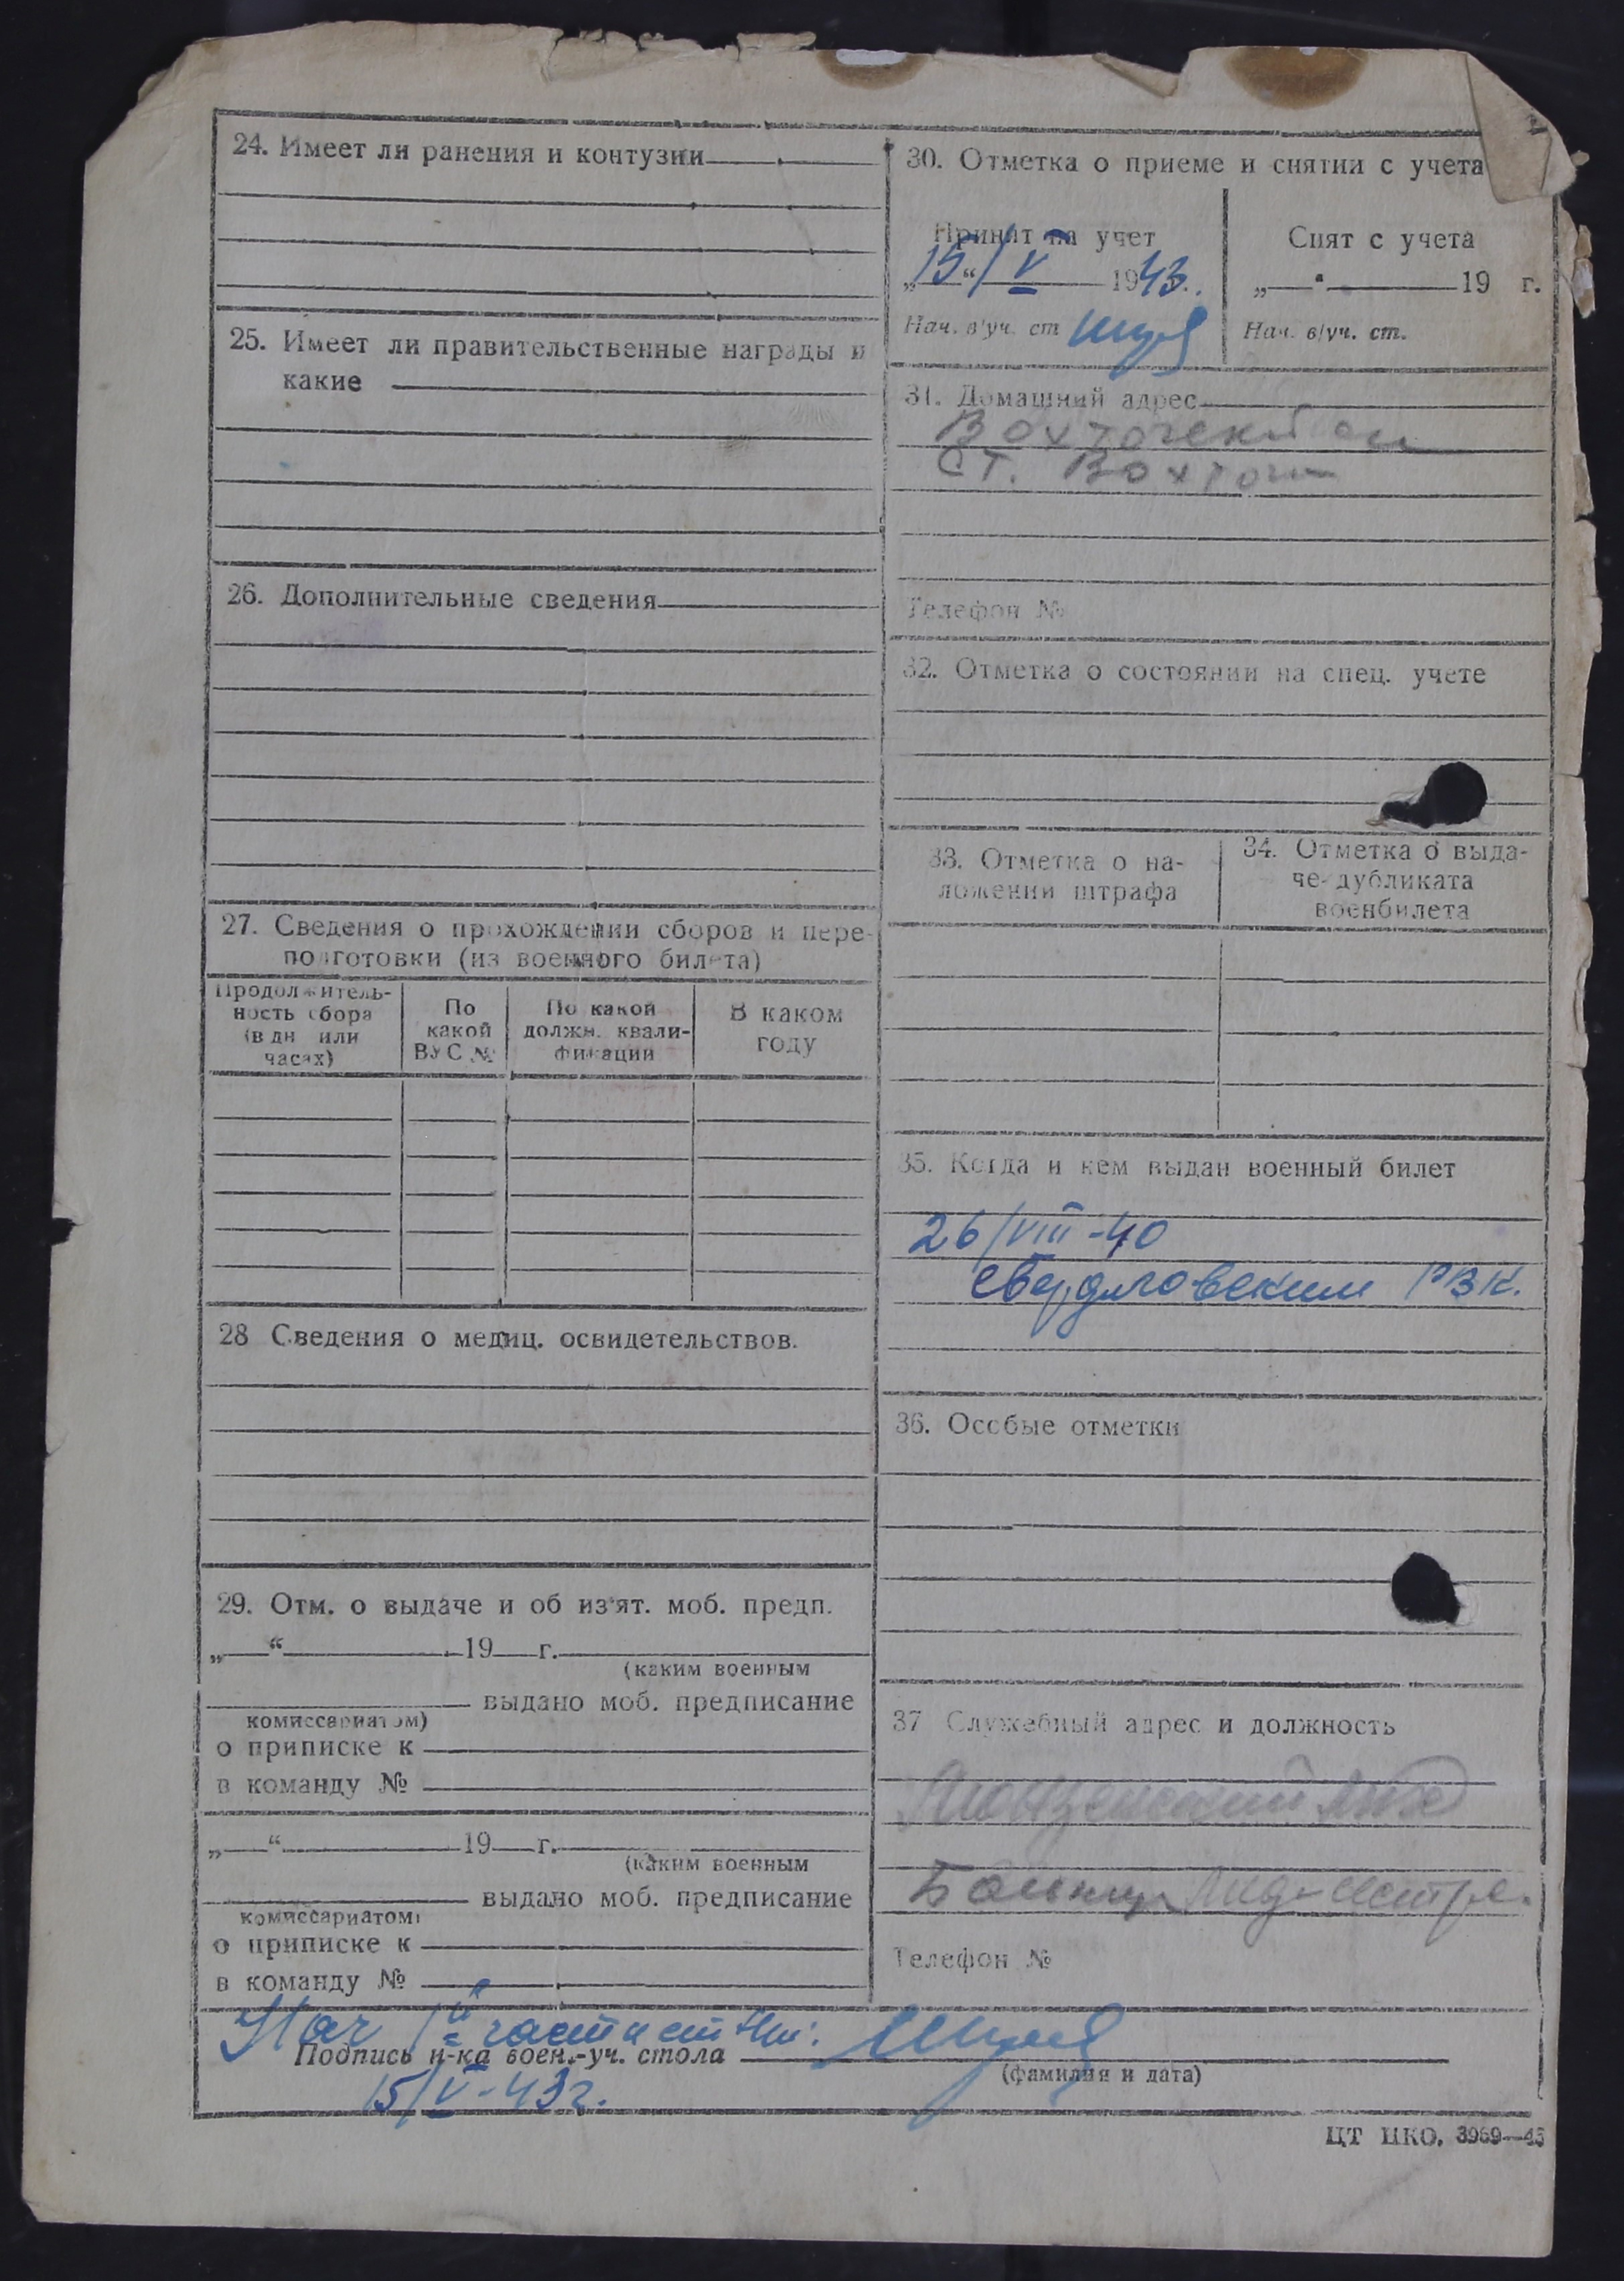 24. Имеет ли ранения и контузии
25. Имеет ли правительственные награды и
какие
26. Дополнительные сведения
27. Сведения о прохождении сборов и пере-
подготовки (из военного билета)
Продолжитель-
ность сбора
(в дн или
часах)
По
какой
ВУС №
По какой
должн. квали-
фикации
В каком
году
28 Сведения о медиц. освидетельствов.
29. Отм. о выдаче и об из'ят. моб. предп.
„ “ 19 г.
(каким военным
выдано моб. предписание
комиссариатом)
о приписке к
в команду №
„ “ 19 г.
(каким военным
выдано моб. предписание
комиссариатом)
о приписке к
в команду №
30. Отметка о приеме и снятии с учета
Принят на учет
„15“/V 1943.
Нач. в/уч. ст
Снят с учета
„ “ 19 г.
Нач. в/уч. ст.
31. Домашний адрес
ст.
Телефон №
32. Отметка о состоянии на спец. учете
33. Отметка о на-
ложении штрафа
34. Отметка о выда-
че дубликата
военбилета
35. Когда и кем выдан военный билет
26/VIII-40
Свердловским РВК.
36. Особые отметки
37 Служебный адрес и должность
Больница Медсестра.
Телефон №
Нач 1й части ст
Подпись н-ка воен.-уч. стола
(фамилия и дата)
15/V-43г.
ЦТ НКО. 3969—43